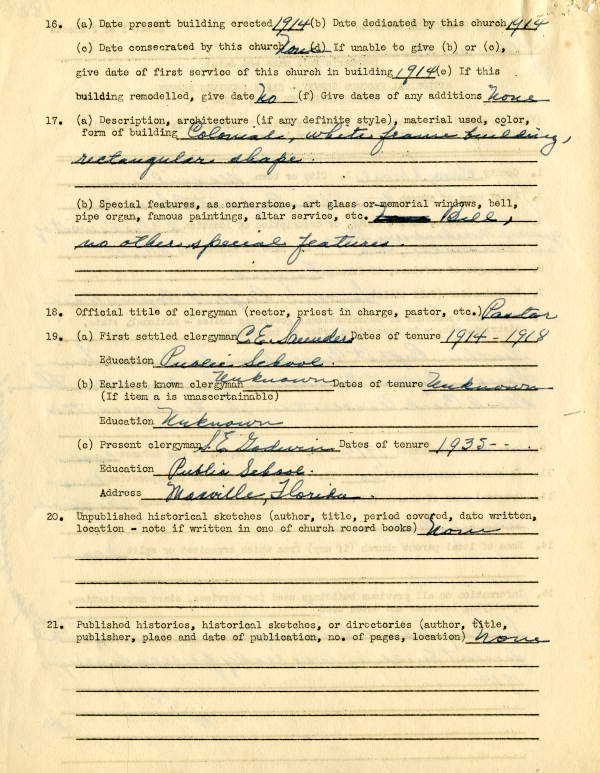 16. (a) Date present building erected 1914 (b) Date dedicated by this church 1914
(c) Date consecrated by this church None (d) If unable to give (b) or (c),
give date of first service of this church in building 1914 (e) If this
building remodelled, give date No (f) Give dates of any additions None
17. (a) Description, architecture (if any definite style), material used, color,
form of building Colonial, white frame building,
rectangular shape.
(b) Special features, as cornerstone, art glass or memorial windows, bell,
pipe organ, famous paintings, altar service, etc. Bell,
no other special features.
18. Official title of clergyman (rector, priest in charge, pastor, etc.) Pastor
19. (a) First settled clergyman C.E. Saunders Dates of tenure 1914-1918
Education Public School.
(b) Earliest known clergyman Unknown Dates of tenure Unknown
(If item a is unascertainable)
Education Unknown
(c) Present clergyman S.E. Godwin Dates of tenure 1935--
Education Public School.
Address Florida.
20. Unpublished historical sketches (author, title, period covered, date written,
location - note if written in one of church record books) None
21. Published histories, historical sketches, or directories (author, title,
publisher, place and date of publication, no. of pages, location) None